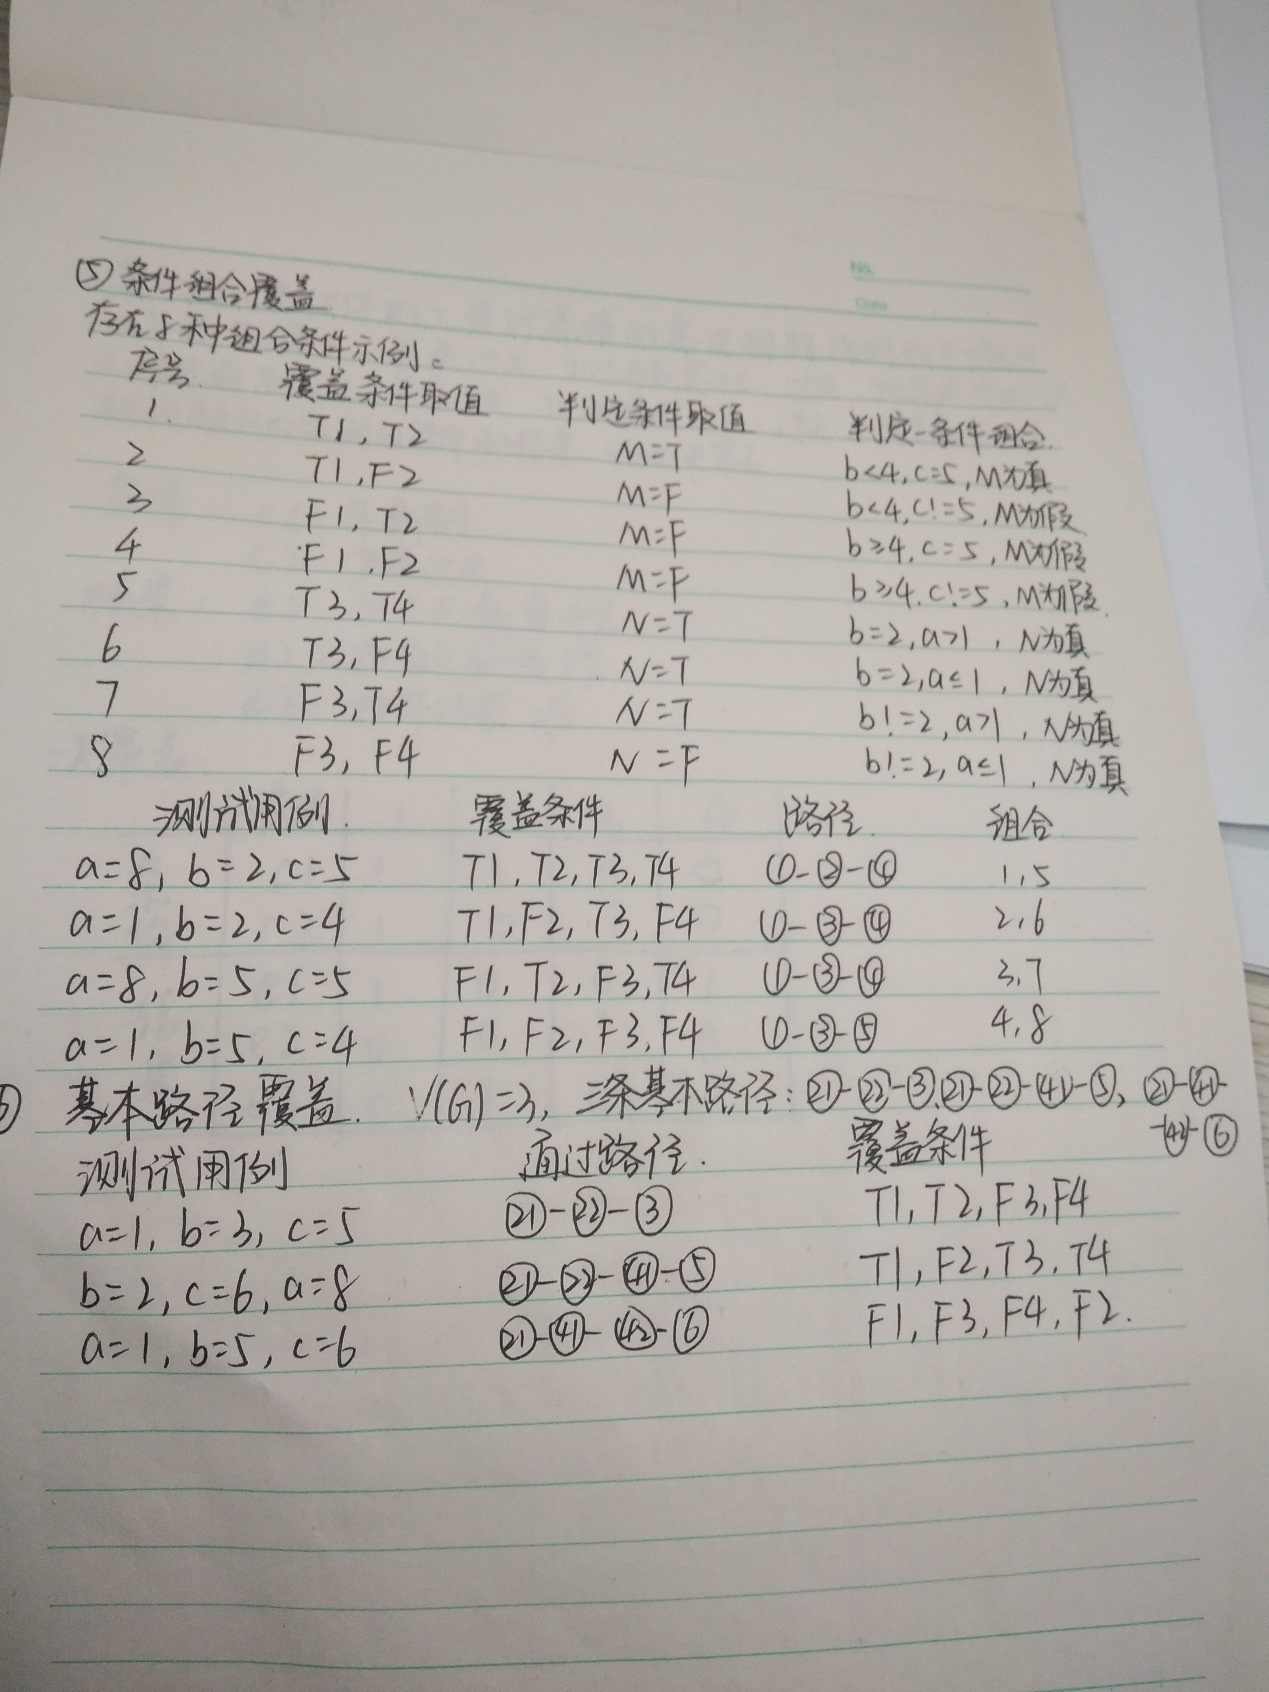 No.
Date
⑤条件组合覆盖
存在8种组合条件示例:
序号 覆盖条件取值 判定条件取值 判定-条件组合
1. T1, T2 M=T b<4, c=5, M为真
2 T1, F2 M=F b<4, c!=5, M为假
3 F1, T2 M=F b≥4, c=5, M为假
4 F1, F2 M=F b≥4, c!=5, M为假
5 T3, T4 N=T b=2, a>1, N为真
6 T3, F4 N=T b=2, a≤1, N为真
7 F3, T4 N=T b!=2, a>1, N为真
8 F3, F4 N=F b!=2, a≤1, N为真
测试用例. 覆盖条件 路径. 组合
a=8, b=2, c=5 T1, T2, T3, T4 ①-②-④ 1,5
a=1, b=2, c=4 T1, F2, T3, F4 ①-③-④ 2,6
a=8, b=5, c=5 F1, T2, F3, T4 ①-③-④ 3,7
a=1, b=5, c=4 F1, F2, F3, F4 ①-③-⑤ 4,8
基本路径覆盖. V(G)=3, 三条基本路径: ㉑-㉒-③, ㉑-㉒-㊶-⑤, ㉑-㊶-
-㊷-⑥
测试用例 通过路径. 覆盖条件
a=1, b=3, c=5 ㉑-㉒-③ T1, T2, F3, F4
b=2, c=6, a=8 ㉑-㉒-㊶-⑤ T1, F2, T3, T4
a=1, b=5, c=6 ㉑-㊶-㊷-⑥ F1, F3, F4, F2.